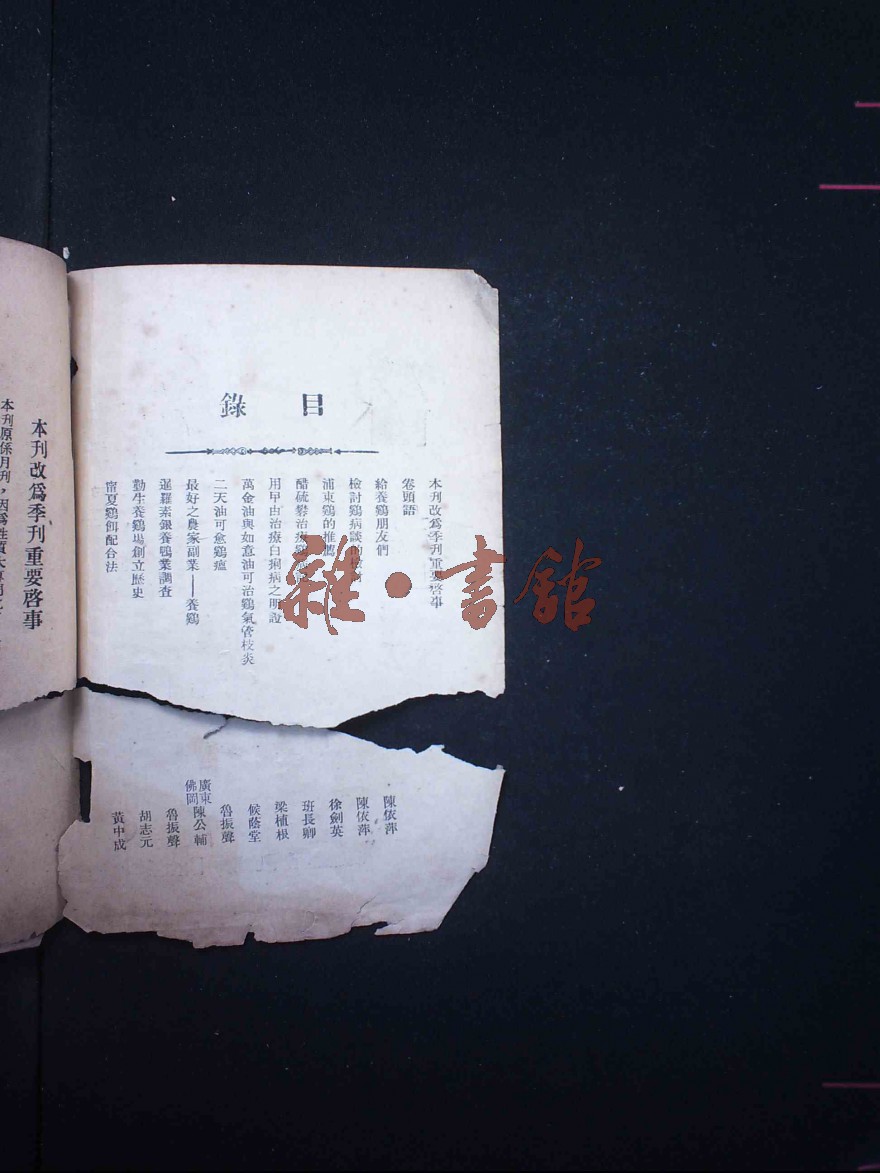 目錄
本刊改為季刊重要啓事
卷頭語
給養鷄朋友們
檢討鷄病談的
浦東鷄的推薦
醋硫礬治療鷄
用甲由治療白痢病之明證
萬金油與如意油可治鷄氣管枝炎
二天油可愈鷄瘟
最好之農家副業——養鷄
暹羅素銀養鴨業調查
勤生養鷄場創立歷史
甯夏鷄飼配合法
陳依萍
陳依萍
徐劍英
班長卿
梁植根
候蔭堂
魯振聲
廣東佛岡陳公輔
魯振聲
胡志元
黃中成
本刊改爲季刊重要啓事
本刊原係月刊，因爲性質
雜·書館